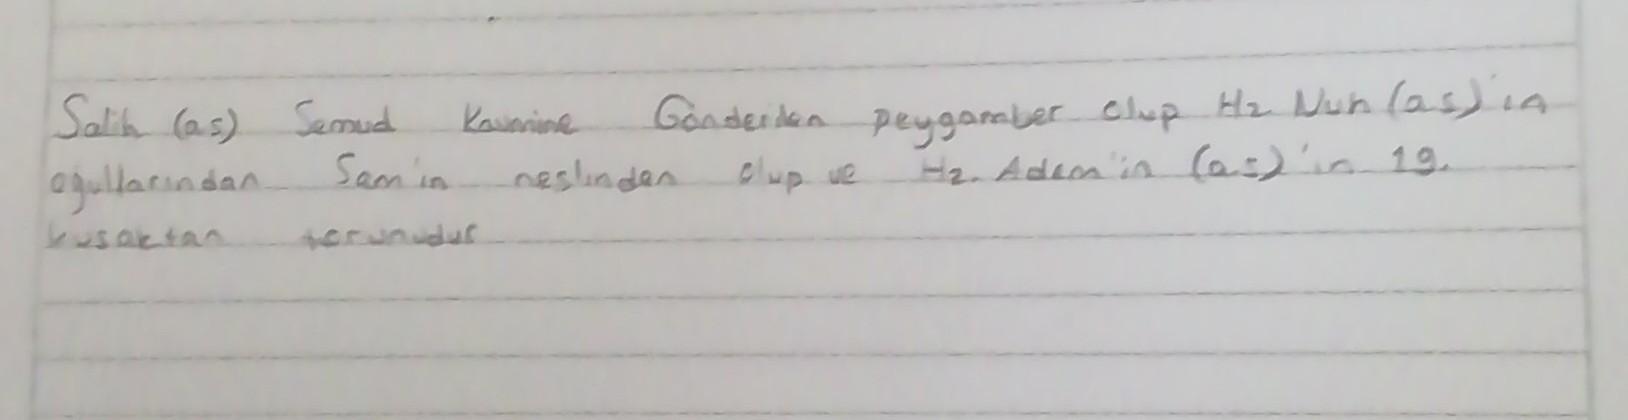 Salih (as) Semud Kavmine Gönderilen peygamber olup Hz Nuh (as)'ın
oğullarından Sam'ın neslinden olup ve Hz. Adem'in (as)'ın 19.
kuşaktan torunudur